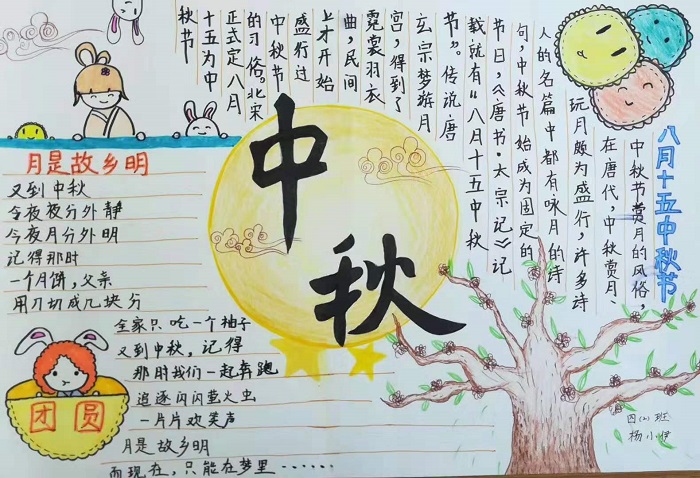 八月十五中秋节
中秋节赏月的风俗,
在唐代,中秋赏月、
玩月颇为盛行,许多诗
人的名篇中都有咏月的诗
句,中秋节始成为固定的
节日,《唐书·太宗记》记
载就有“八月十五中秋
节”。传说唐
玄宗梦游月
宫,得到了
霓裳羽衣
曲,民间
上才开始
盛行过
中秋节
的习俗。北宋
正式定八月
十五为中
秋节
中秋
月是故乡明
又到中秋
今夜分外静
今夜月分外明
记得那时
一个月饼,父亲
用刀切成几块分
全家只吃一个柚子
又到中秋,记得
那时我们一起奔跑
追逐闪闪萤火虫
一片片欢笑声
月是故乡明
而现在,只能在梦里……
团圆
四(2)班
杨小伊